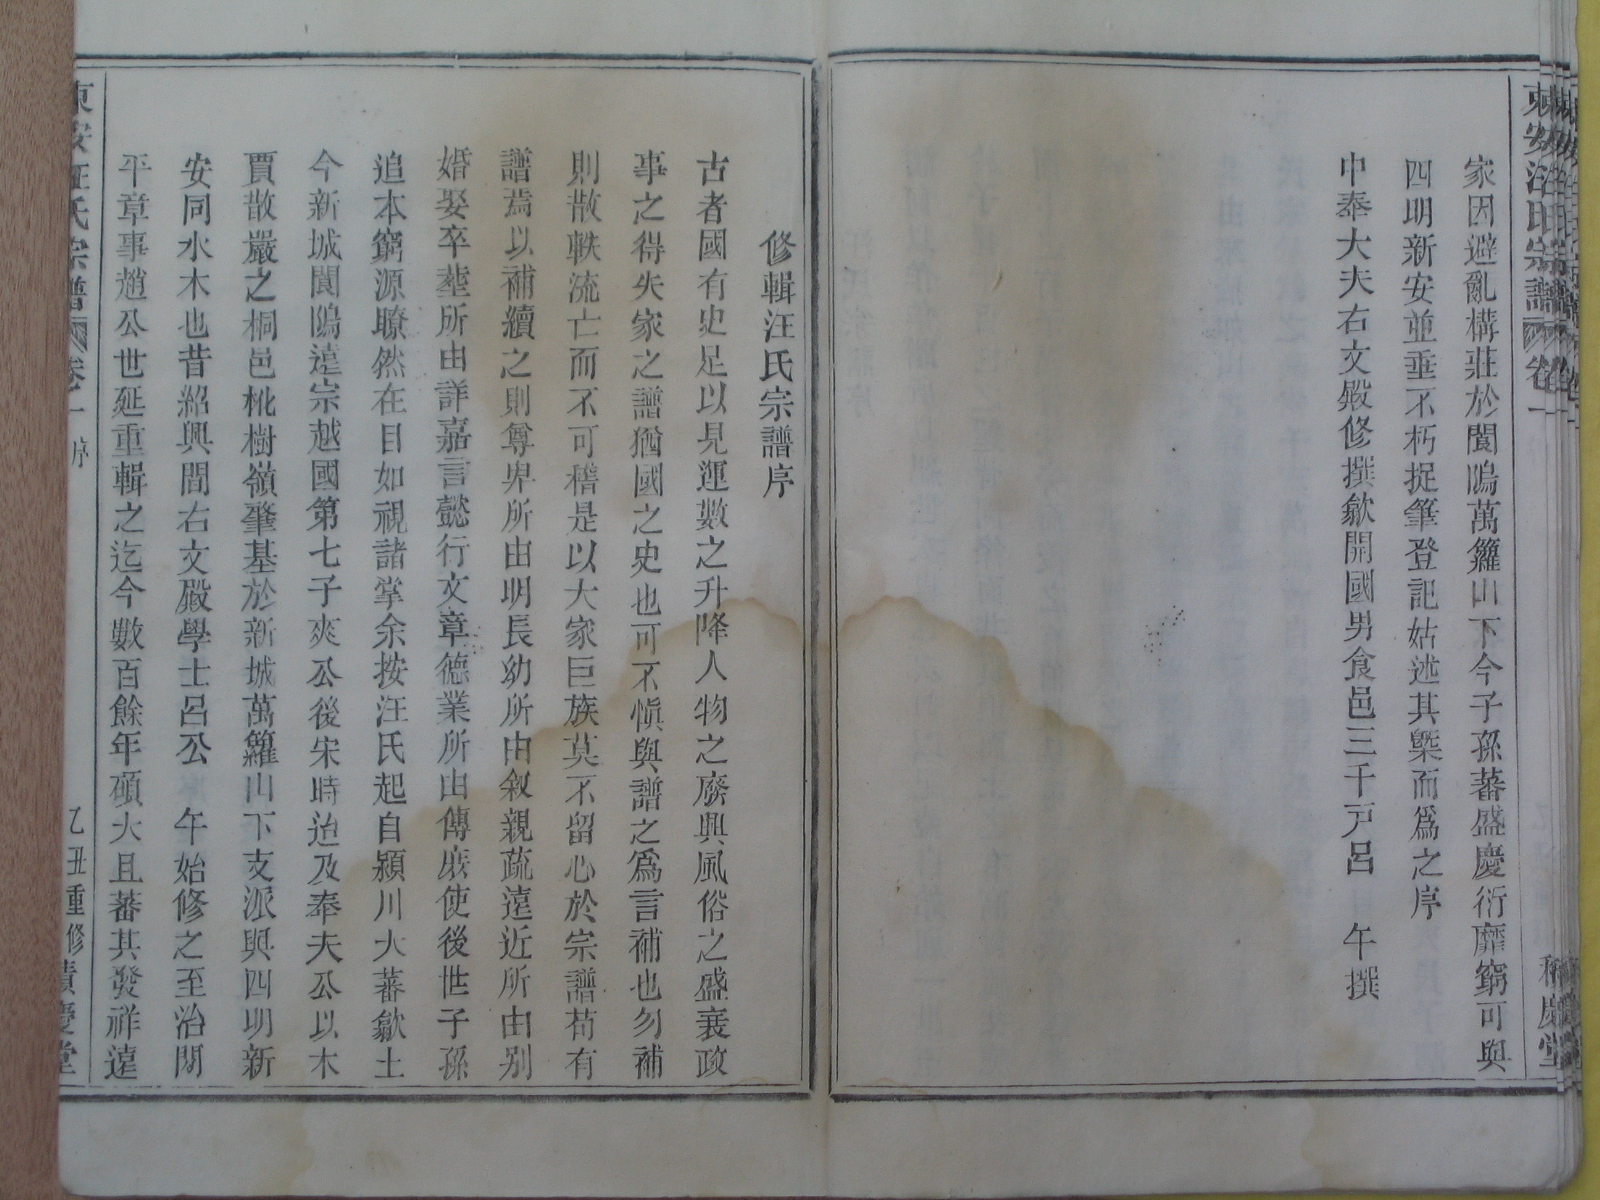 家因避亂構莊於閬鵰萬籮山下今子孫蕃盛慶衍靡窮可與
四明新安並垂不朽捉筆登記姑述其槩而爲之序
中奉大夫右文殿修撰歙開國男食邑三千戸呂　午撰
修輯汪氏宗譜序
古者國有史足以見運數之升降人物之廢興風俗之盛衰政
事之得失家之譜猶國之史也可不愼與譜之爲言補也勿補
則散軼流亡而不可稽是以大家巨族莫不留心於宗譜苟有
譜焉以補續之則尊卑所由明長幼所由叙親疏遠近所由别
婚娶卒塟所由詳嘉言懿行文章德業所由傳庶使後世子孫
追本窮源瞭然在目如視諸掌余按汪氏起自潁川大蕃歙土
今新城閬鵰遠宗越國第七子爽公後宋時迨及奉夫公以木
賈散嚴之桐邑桃樹嶺肇基於新城萬籮山下支派與四明新
安同水木也昔紹興間右文殿學士呂公　午始修之至治間
平章事趙公世延重輯之迄今數百餘年碩大且蕃其發祥遠
東安汪氏宗譜　卷一　序　乙丑重修　積慶堂
東安汪氏宗譜　卷一　積慶堂